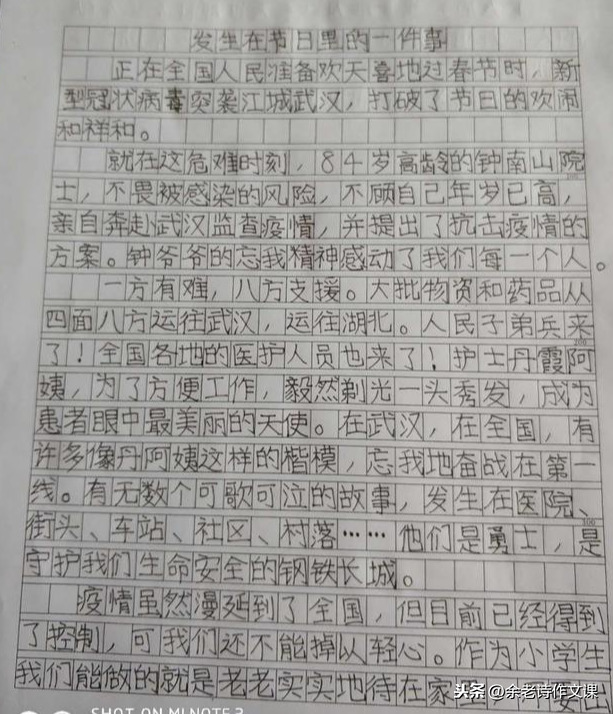 发生在节日里的一件事
正在全国人民准备欢天喜地过春节时，新
型冠状病毒突袭江城武汉，打破了节日的欢闹
和祥和。
就在这危难时刻，84岁高龄的钟南山院
士，不畏被感染的风险，不顾自己年岁已高，
亲自奔赴武汉监查疫情，并提出了抗击疫情的
方案。钟爷爷的忘我精神感动了我们每一个人。
一方有难，八方支援。大批物资和药品从
四面八方运往武汉，运往湖北。人民子弟兵来
了！全国各地的医护人员也来了！护士丹霞阿
姨，为了方便工作，毅然剃光一头秀发，成为
患者眼中最美丽的天使。在武汉，在全国，有
许多像丹阿姨这样的楷模，忘我地奋战在第一
线。有无数个可歌可泣的故事，发生在医院、
街头、车站、社区、村落……他们是勇士，是
守护我们生命安全的钢铁长城。
疫情虽然漫延到了全国，但目前已经得到
了控制，可我们还不能掉以轻心。作为小学生
我们能做的就是老老实实地待在家
头条 @余老诗作文课
SHOT ON MI NOTE 3